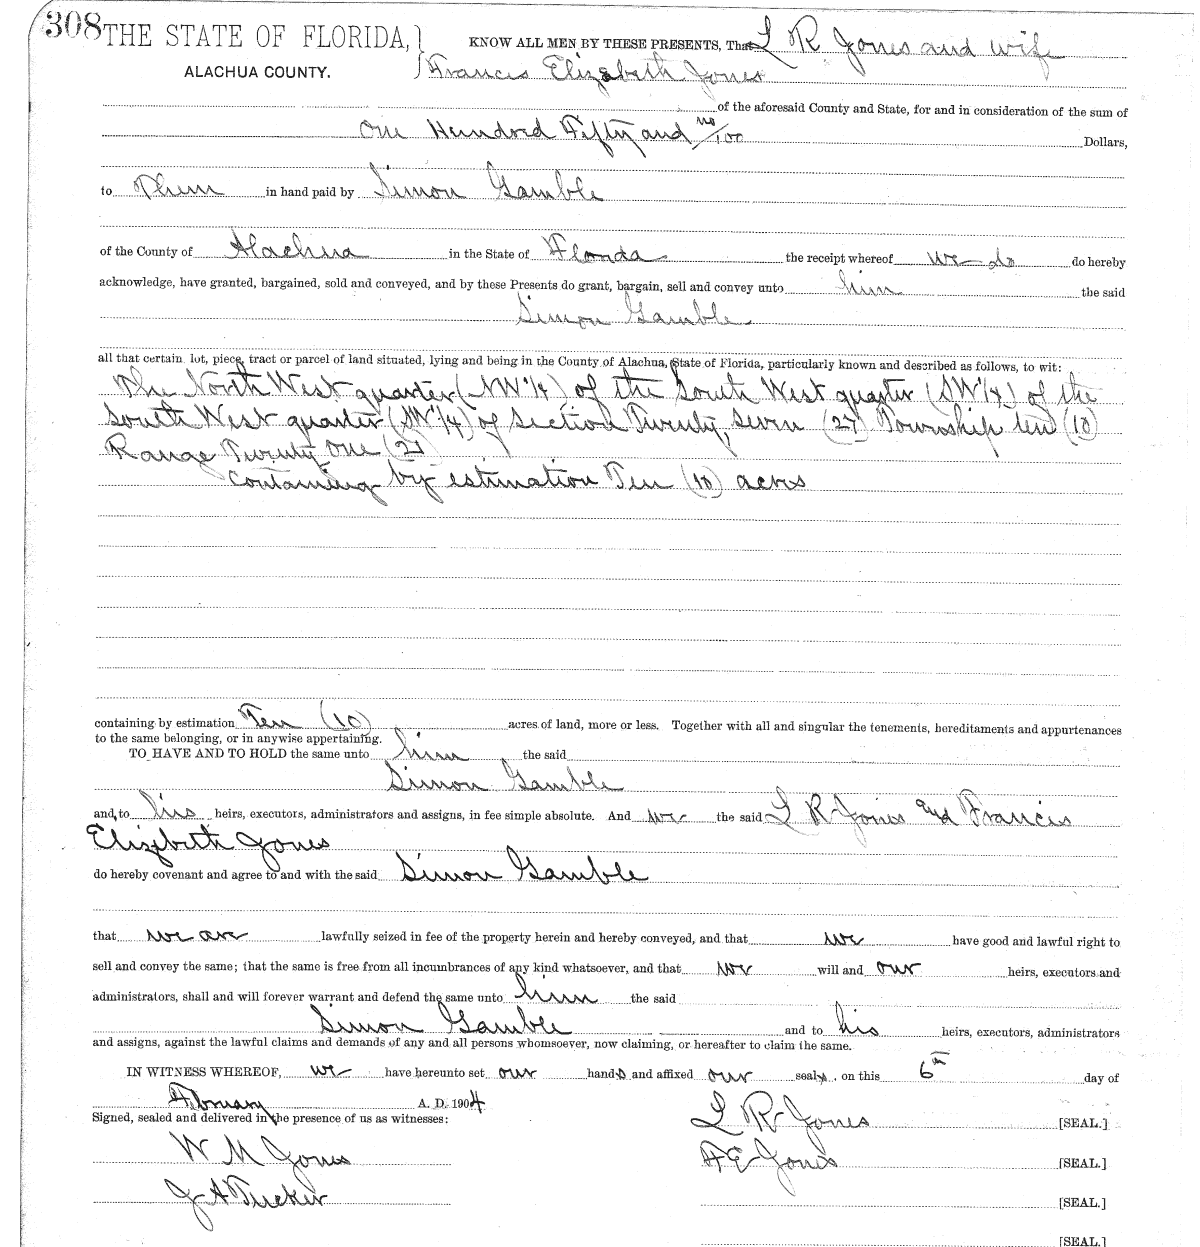 308 THE STATE OF FLORIDA, } KNOW ALL MEN BY THESE PRESENTS, That L R Jones and wife
ALACHUA COUNTY. Francis Elizabeth Jones
of the aforesaid County and State, for and in consideration of the sum of
One Hundred Fifty and no/100 Dollars,
to Them in hand paid by Simon Gamble
of the County of Alachua in the State of Florida the receipt whereof we do do hereby
acknowledge, have granted, bargained, sold and conveyed, and by these Presents do grant, bargain, sell and convey unto him the said
Simon Gamble
all that certain lot, piece, tract or parcel of land situated, lying and being in the County of Alachua, State of Florida, particularly known and described as follows, to wit:
The North West quarter (NW 1/4) of the South West quarter (SW 1/4) of the
South West quarter (SW 1/4) of Section Twenty Seven (27) Township ten (10)
Range Twenty One (21)
Containing by estimation Ten (10) acres
containing by estimation Ten (10) acres of land, more or less. Together with all and singular the tenements, hereditaments and appurtenances
to the same belonging, or in anywise appertaining.
TO HAVE AND TO HOLD the same unto him the said
Simon Gamble
and to his heirs, executors, administrators and assigns, in fee simple absolute. And we the said L R Jones and Francis
Elizebeth Jones
do hereby covenant and agree to and with the said Simon Gamble
that we are lawfully seized in fee of the property herein and hereby conveyed, and that we have good and lawful right to
sell and convey the same; that the same is free from all incumbrances of any kind whatsoever, and that we will and our heirs, executors and
administrators, shall and will forever warrant and defend the same unto him the said
Simon Gamble and to his heirs, executors, administrators
and assigns, against the lawful claims and demands of any and all persons whomsoever, now claiming, or hereafter to claim the same.
IN WITNESS WHEREOF, we have hereunto set our hands and affixed our seals, on this 6th day of
February A. D. 1904
Signed, sealed and delivered in the presence of us as witnesses: L R Jones [SEAL.]
W M Jones F E Jones [SEAL.]
J A Tucker [SEAL.]
[SEAL.]